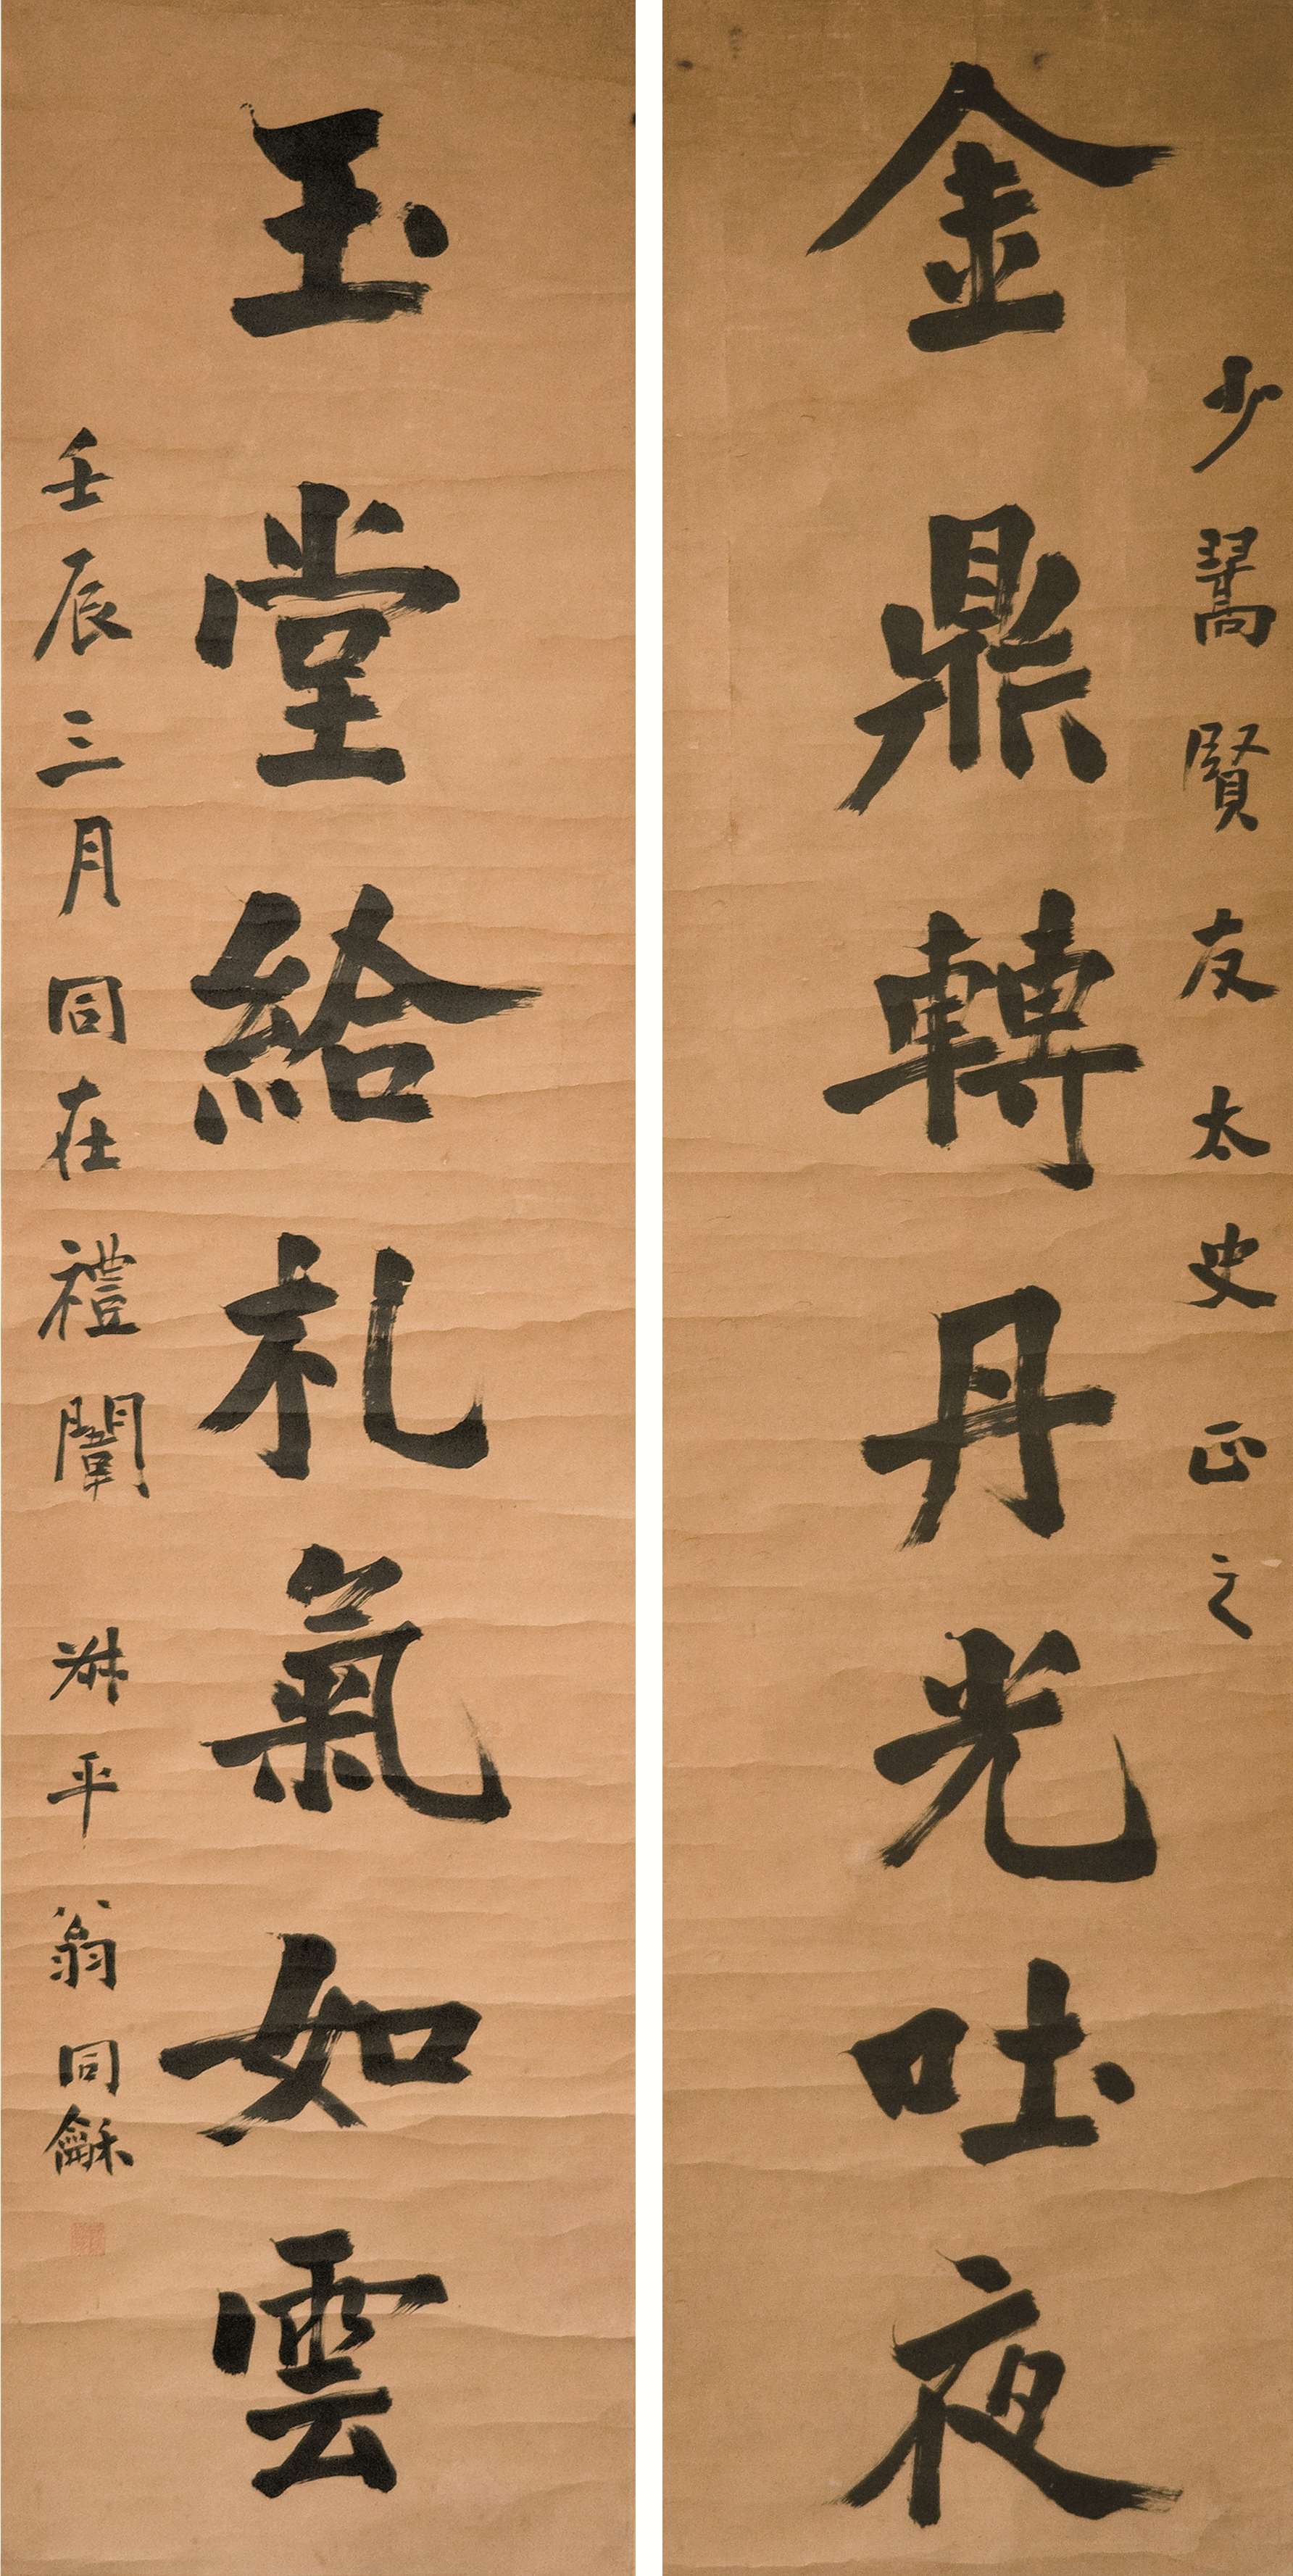 金鼎轉丹光吐夜
少翯賢友太史正之
玉堂給札氣如雲
壬辰三月同在禮闈
叔平翁同龢